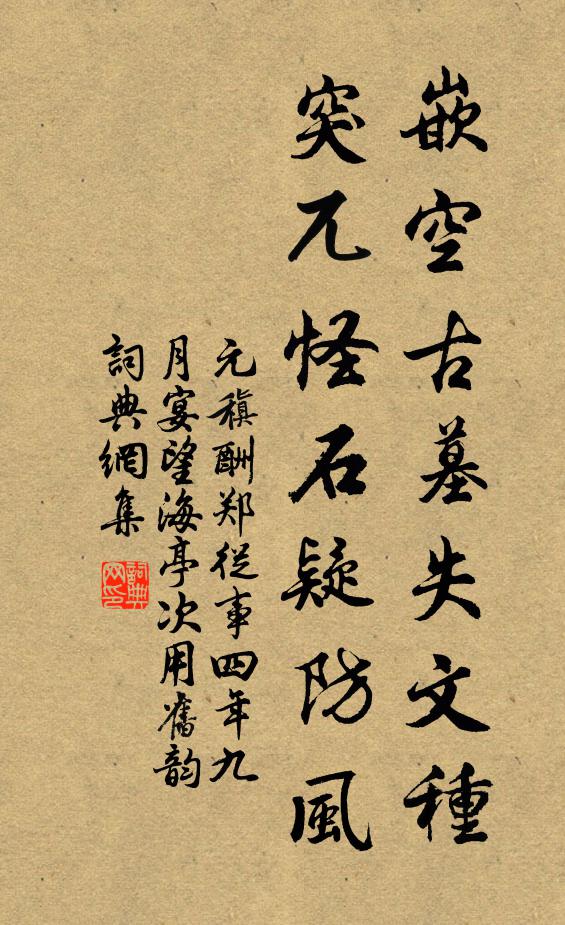 嵌空古墓失文種
突兀怪石疑防風
元稹酬郑從事四年九
月宴望海亭次用舊韵
詞典網集
詞典网印